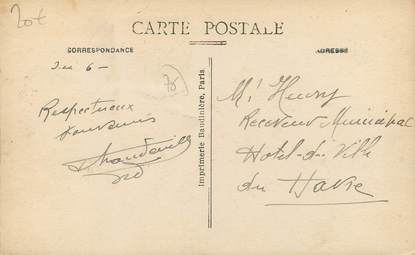 20€
CARTE POSTALE
CORRESPONDANCE
ADRESSE
6 -
Respectueux
souvenirs
Imprimerie Baudinière, Paris
Mr Henry
Receveur Municipal
Hotel-de-Ville
du Havre